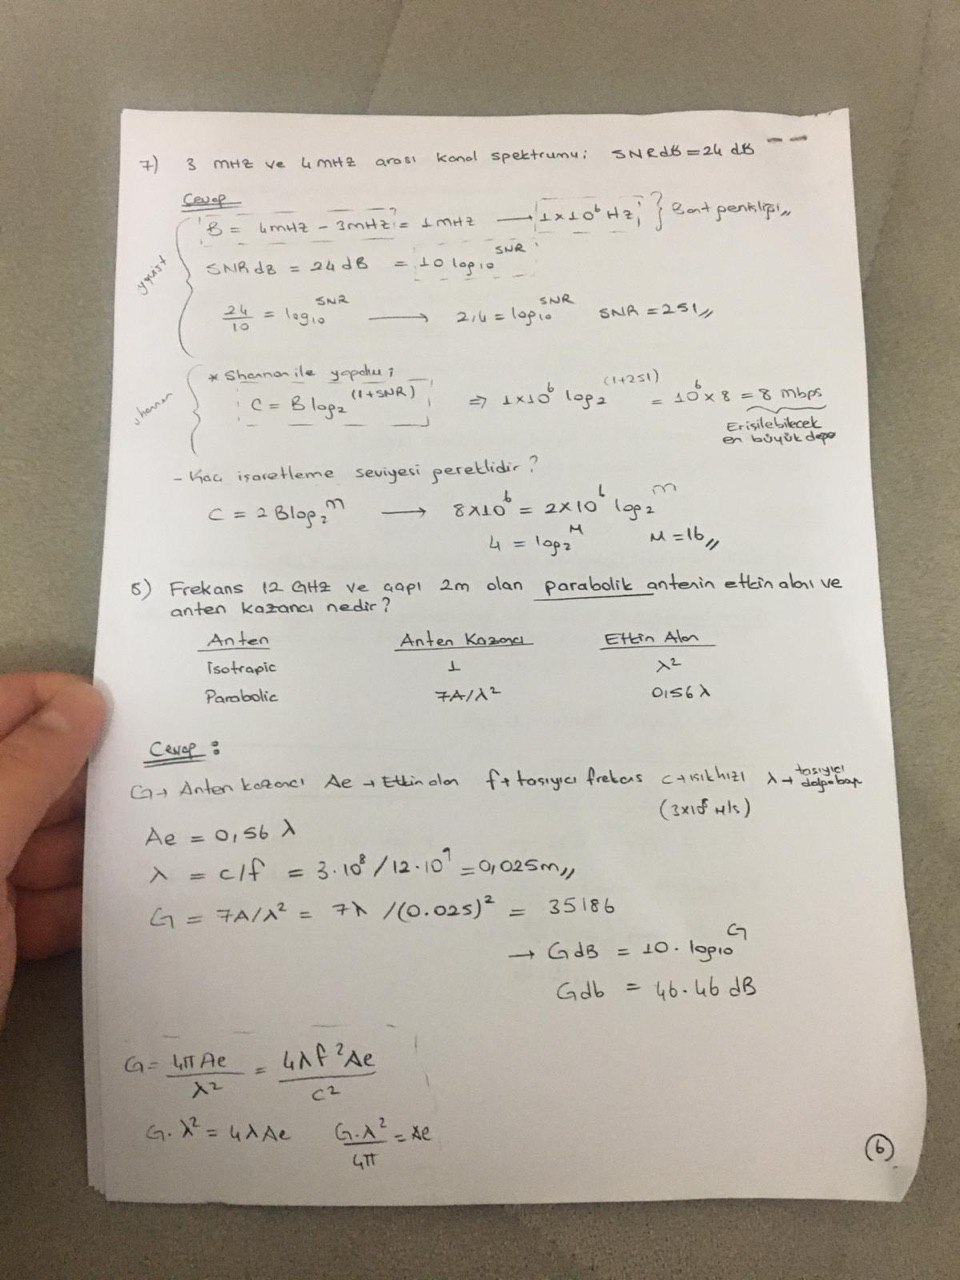 7) 3 mHz ve 4 mHz arası kanal spektrumu; SNRdB = 24 dB
Cevap
B = 4mHz - 3mHz = 1 mHz → 1x10^6 Hz; } Bant genişliği,,
nyquist
SNRdB = 24 dB = 10 log10^SNR
24/10 = log10^SNR → 2,4 = log10^SNR SNR = 251,,
shannon
* Shannon ile yapılu;
C = B log2^(1+SNR) ⇒ 1x10^6 log2^(1+251) = 10^6 x 8 = 8 mbps
Erişilebilecek
en büyük değe
- Kaç işaretleme seviyesi gereklidir?
C = 2 B log2^m → 8x10^6 = 2x10^6 log2^m
4 = log2^M M = 16,,
8) Frekans 12 GHz ve çapı 2m olan parabolik antenin etkin alanı ve
anten kazancı nedir?
Anten Anten Kazancı Etkin Alan
isotrapic 1 λ^2
Parabolic 7A/λ^2 0,56 λ
Cevap :
G→ Anten kazancı Ae → Etkin alan f→ taşıyıcı frekans c→ ışık hızı λ→ taşıyıcı dalga boyu
(3x10^8 M/s)
Ae = 0,56 λ
λ = c/f = 3.10^8 / 12.10^9 = 0,025m,,
G = 7A/λ^2 = 7λ /(0.025)^2 = 35186
→ GdB = 10. log10^G
Gdb = 46.46 dB
G = 4π Ae / λ^2 = 4λ f^2 Ae / c^2
G. λ^2 = 4λAe G.λ^2 / 4π = Ae
6